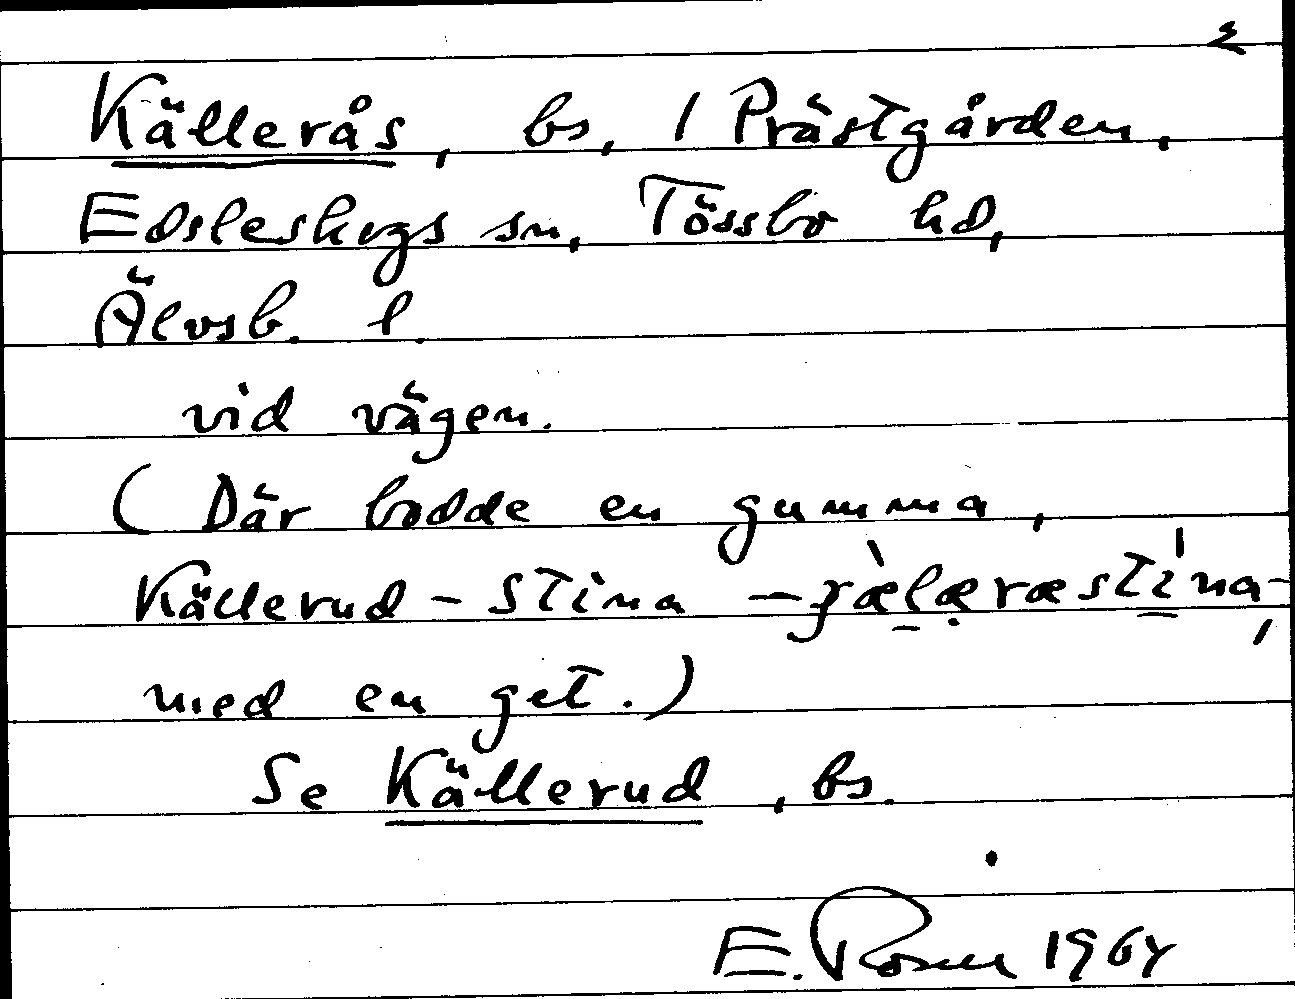 2
Källerås, bs, / Prästgården,
Edsleskogs sn, Tössbo hd,
Älvsb. l.
vid vägen.
( Där bodde en gumma,
Källerud - Stina -
med en get.)
Se Källerud, bs.
E. Rosell 1964